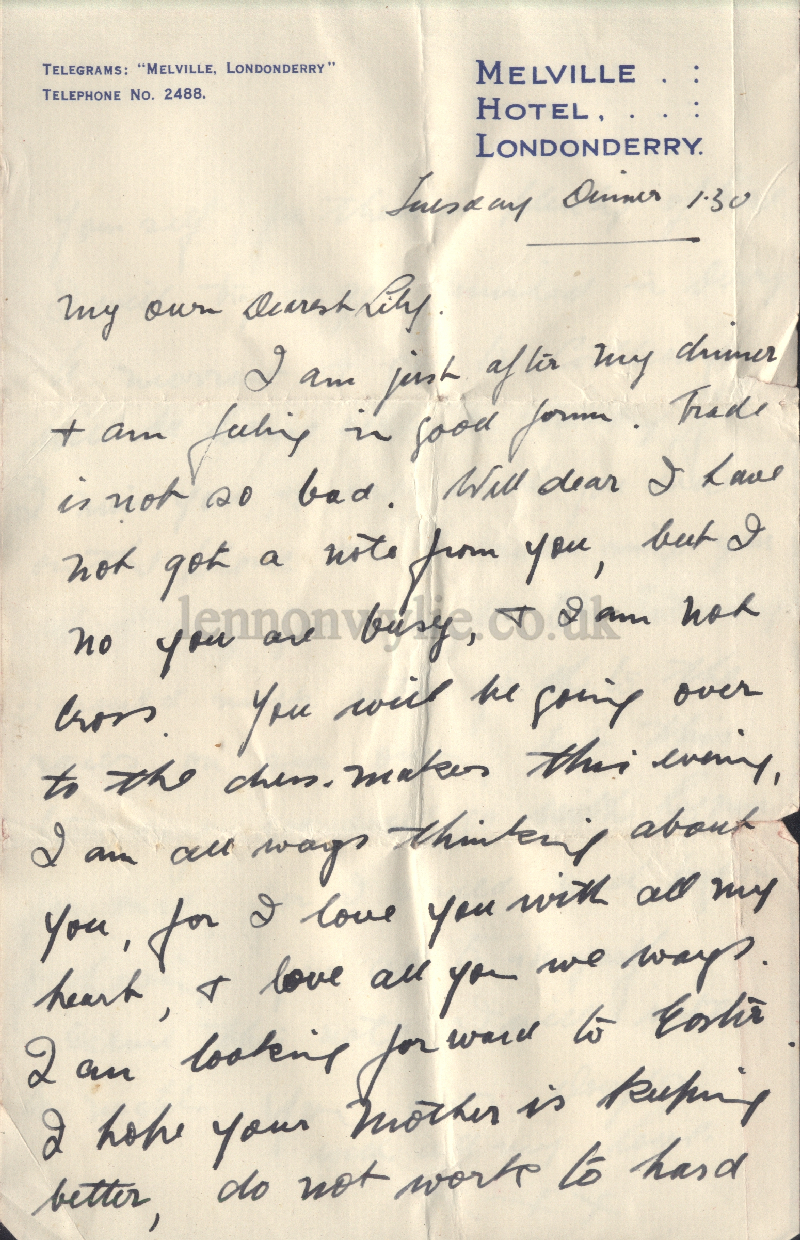 TELEGRAMS: "MELVILLE, LONDONDERRY"
TELEPHONE No. 2488.
MELVILLE . :
HOTEL, . . :
LONDONDERRY.
Tuesday Dinner 1.30
My own Dearest Lily.
I am just after my dinner
+ am feeling in good form. Trade
is not so bad. Well dear I have
not got a note from you, but I
no you are busy, + I am not
cross. You will be going over
to the dress-makers this evening,
I am all ways thinking about
you, for I love you with all my
heart, + love all you we ways.
I am looking forward to Easter.
I hope your Mother is keeping
better, do not work to hard
lennonwylie.co.uk